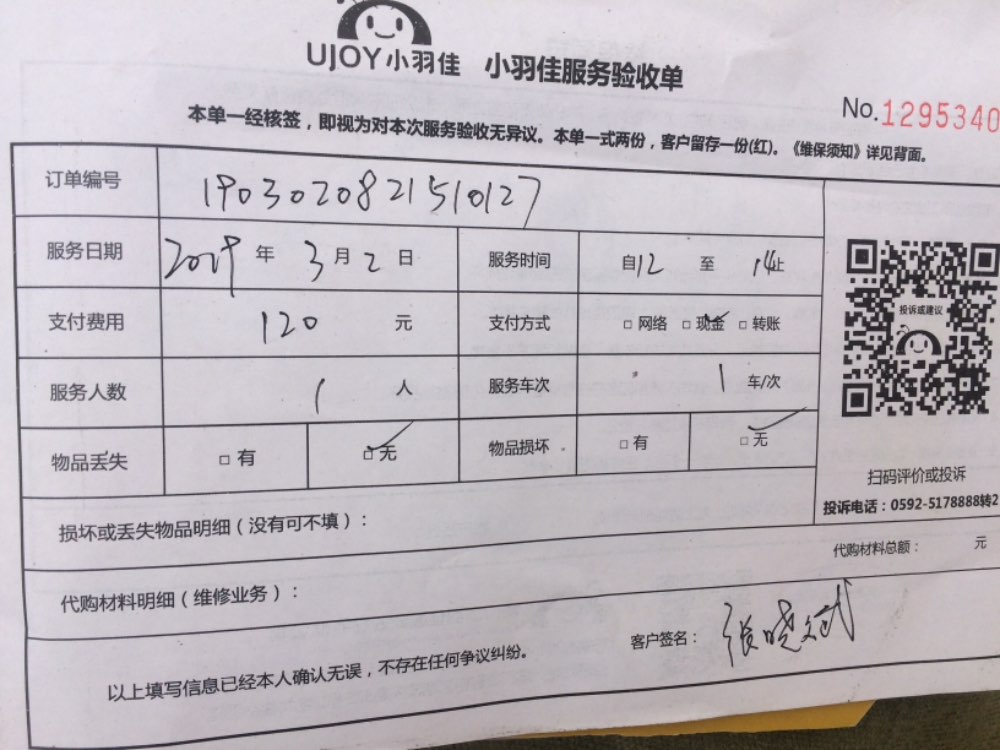 UJOY小羽佳 小羽佳服务验收单
No.1295340
本单一经核签，即视为对本次服务验收无异议。本单一式两份，客户留存一份(红)。《维保须知》详见背面。
订单编号 1903020821510127
服务日期 2019年 3月 2日 服务时间 自12 至 14止
支付费用 120 元 支付方式 □ 网络 □ 现金 □ 转账
服务人数 1 人 服务车次 1 车/次
物品丢失 □ 有 □ 无 物品损坏 □ 有 □ 无
投诉或建议
扫码评价或投诉
投诉电话：0592-5178888转2
损坏或丢失物品明细（没有可不填）：
代购材料总额： 元
代购材料明细（维修业务）：
客户签名： 张晓斌
以上填写信息已经本人确认无误，不存在任何争议纠纷。